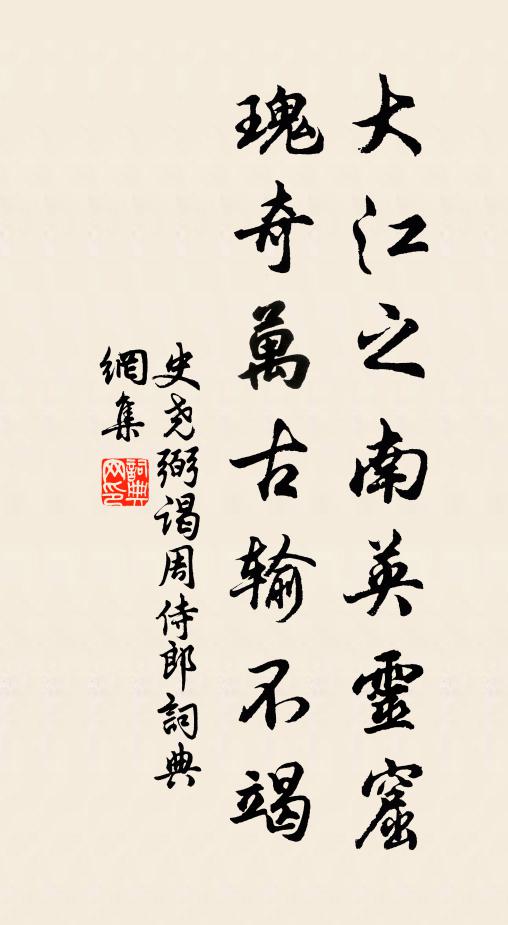 大江之南英靈窟
瑰奇萬古输不竭
史尧弼谒周侍郎詞典
網集
詞典
网印